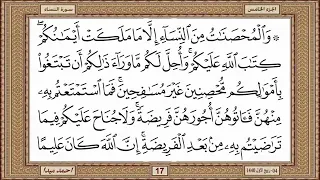 الجزء الخامس
سورة النساء
۞ وَٱلْمُحْصَنَٰتُ مِنَ ٱلنِّسَآءِ إِلَّا مَا مَلَكَتْ أَيْمَٰنُكُمْ ۖ
كِتَٰبَ ٱللَّهِ عَلَيْكُمْ ۚ وَأُحِلَّ لَكُم مَّا وَرَآءَ ذَٰلِكُمْ أَن تَبْتَغُوا۟
بِأَمْوَٰلِكُم مُّحْصِنِينَ غَيْرَ مُسَٰفِحِينَ ۚ فَمَا ٱسْتَمْتَعْتُم بِهِۦ
مِنْهُنَّ فَـَٔاتُوهُنَّ أُجُورَهُنَّ فَرِيضَةً ۚ وَلَا جُنَاحَ عَلَيْكُمْ فِيمَا
تَرَٰضَيْتُم بِهِۦ مِنۢ بَعْدِ ٱلْفَرِيضَةِ ۚ إِنَّ ٱللَّهَ كَانَ عَلِيمًا
17